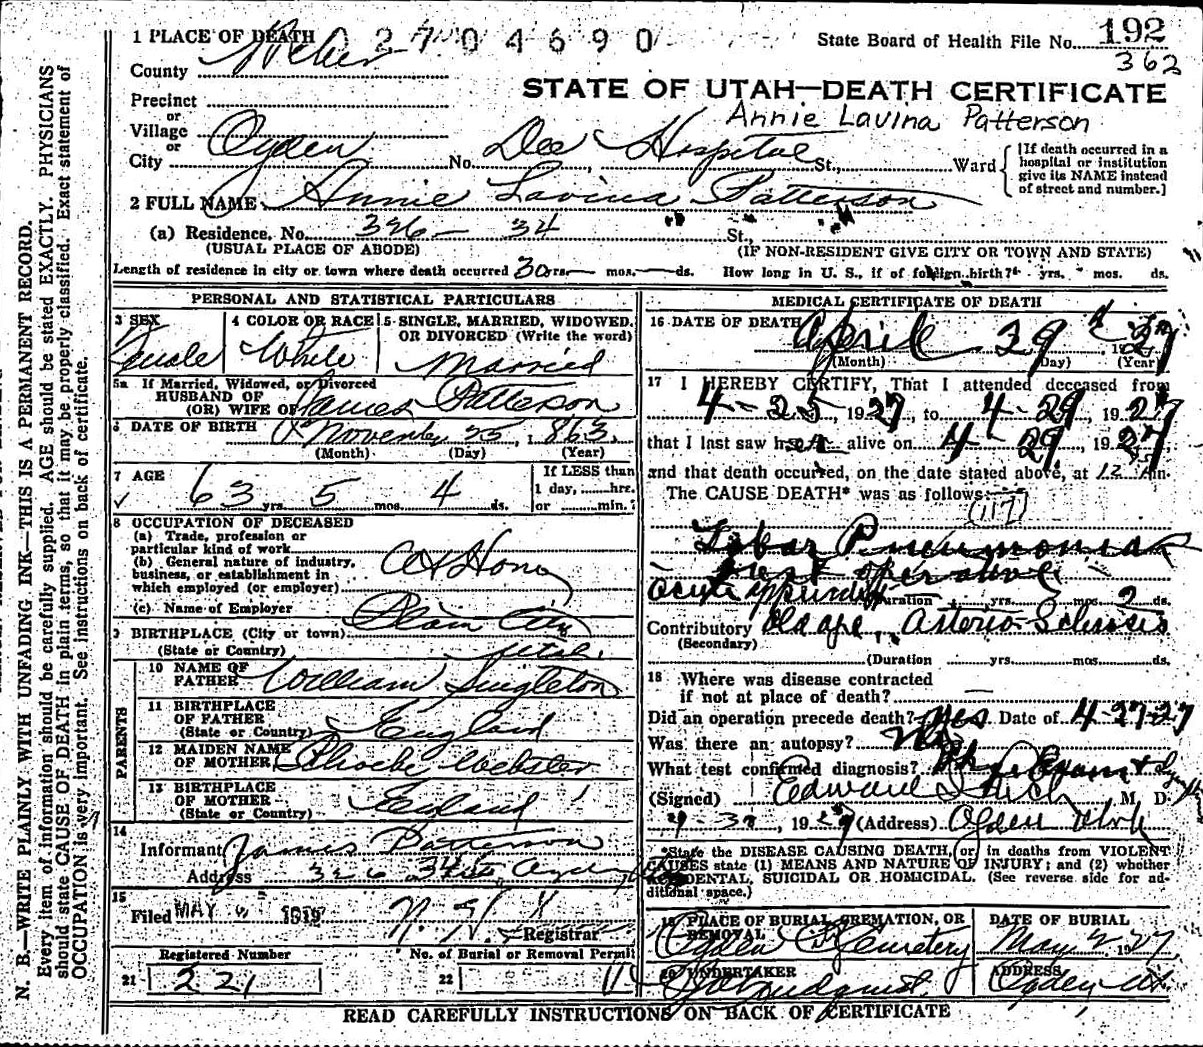 1 PLACE OF DEATH 02704690
State Board of Health File No. 192
362
County Weber
STATE OF UTAH—DEATH CERTIFICATE
Annie Lavina Patterson
Precinct
or
Village
or
City Ogden No. Dee Hospital St., Ward
[If death occurred in a hospital or institution give its NAME instead of street and number.]
2 FULL NAME Annie Lavina Patterson
(a) Residence. No. 326 - 34 St.
(USUAL PLACE OF ABODE) (IF NON-RESIDENT GIVE CITY OR TOWN AND STATE)
Length of residence in city or town where death occurred 30 yrs. mos. ds. How long in U. S., if of foreign birth? yrs. mos. ds.
PERSONAL AND STATISTICAL PARTICULARS
3 SEX Female
4 COLOR OR RACE White
5 SINGLE, MARRIED, WIDOWED, OR DIVORCED (Write the word) Married
5a If Married, Widowed, or Divorced
HUSBAND OF
(OR) WIFE OF James Patterson
6 DATE OF BIRTH November 25, 1863
(Month) (Day) (Year)
7 AGE 63 yrs. 5 mos. 4 ds.
If LESS than 1 day, hrs. or min.
8 OCCUPATION OF DECEASED
(a) Trade, profession or particular kind of work
(b) General nature of industry, business, or establishment in which employed (or employer) At Home
(c) Name of Employer
9 BIRTHPLACE (City or town) Plain City
(State or Country) Utah.
PARENTS
10 NAME OF FATHER William Singleton
11 BIRTHPLACE OF FATHER (State or Country) England
12 MAIDEN NAME OF MOTHER Phoebe Webster
13 BIRTHPLACE OF MOTHER (State or Country) England
14 Informant James Patterson
Address 326 34 St Ogden
15 Filed MAY 1919 Registrar
Registered Number
21 221
No. of Burial or Removal Permit
22
MEDICAL CERTIFICATE OF DEATH
16 DATE OF DEATH April 29 1927
(Month) (Day) (Year)
17 I HEREBY CERTIFY, That I attended deceased from
4-25, 1927, to 4-29, 1927
that I last saw her alive on 4-29, 1927
and that death occurred, on the date stated above, at 12 m.
The CAUSE DEATH* was as follows:
(117)
Lobar Pneumonia
Post operative
Acute appendix Duration yrs. mos. 2 ds.
Contributory Old age, Arterio-Sclerosis
(Secondary)
(Duration yrs. mos. ds.
18 Where was disease contracted
if not at place of death?
Did an operation precede death? Yes Date of 4-27-27
Was there an autopsy? No
What test confirmed diagnosis? Phy Exam +
(Signed) Edward M. D.
4-30, 1927 (Address) Ogden Utah
*State the DISEASE CAUSING DEATH, or in deaths from VIOLENT CAUSES state (1) MEANS AND NATURE OF INJURY; and (2) whether ACCIDENTAL, SUICIDAL OR HOMICIDAL. (See reverse side for additional space.)
19 PLACE OF BURIAL, CREMATION, OR REMOVAL Ogden Cemetery
DATE OF BURIAL May 2, 1927
20 UNDERTAKER Lindquist
ADDRESS Ogden Ut.
READ CAREFULLY INSTRUCTIONS ON BACK OF CERTIFICATE
N. B.—WRITE PLAINLY WITH UNFADING INK—THIS IS A PERMANENT RECORD.
Every item of information should be carefully supplied. AGE should be stated EXACTLY. PHYSICIANS
should state CAUSE OF DEATH in plain terms, so that it may be properly classified. Exact statement of
OCCUPATION is very important. See instructions on back of certificate.